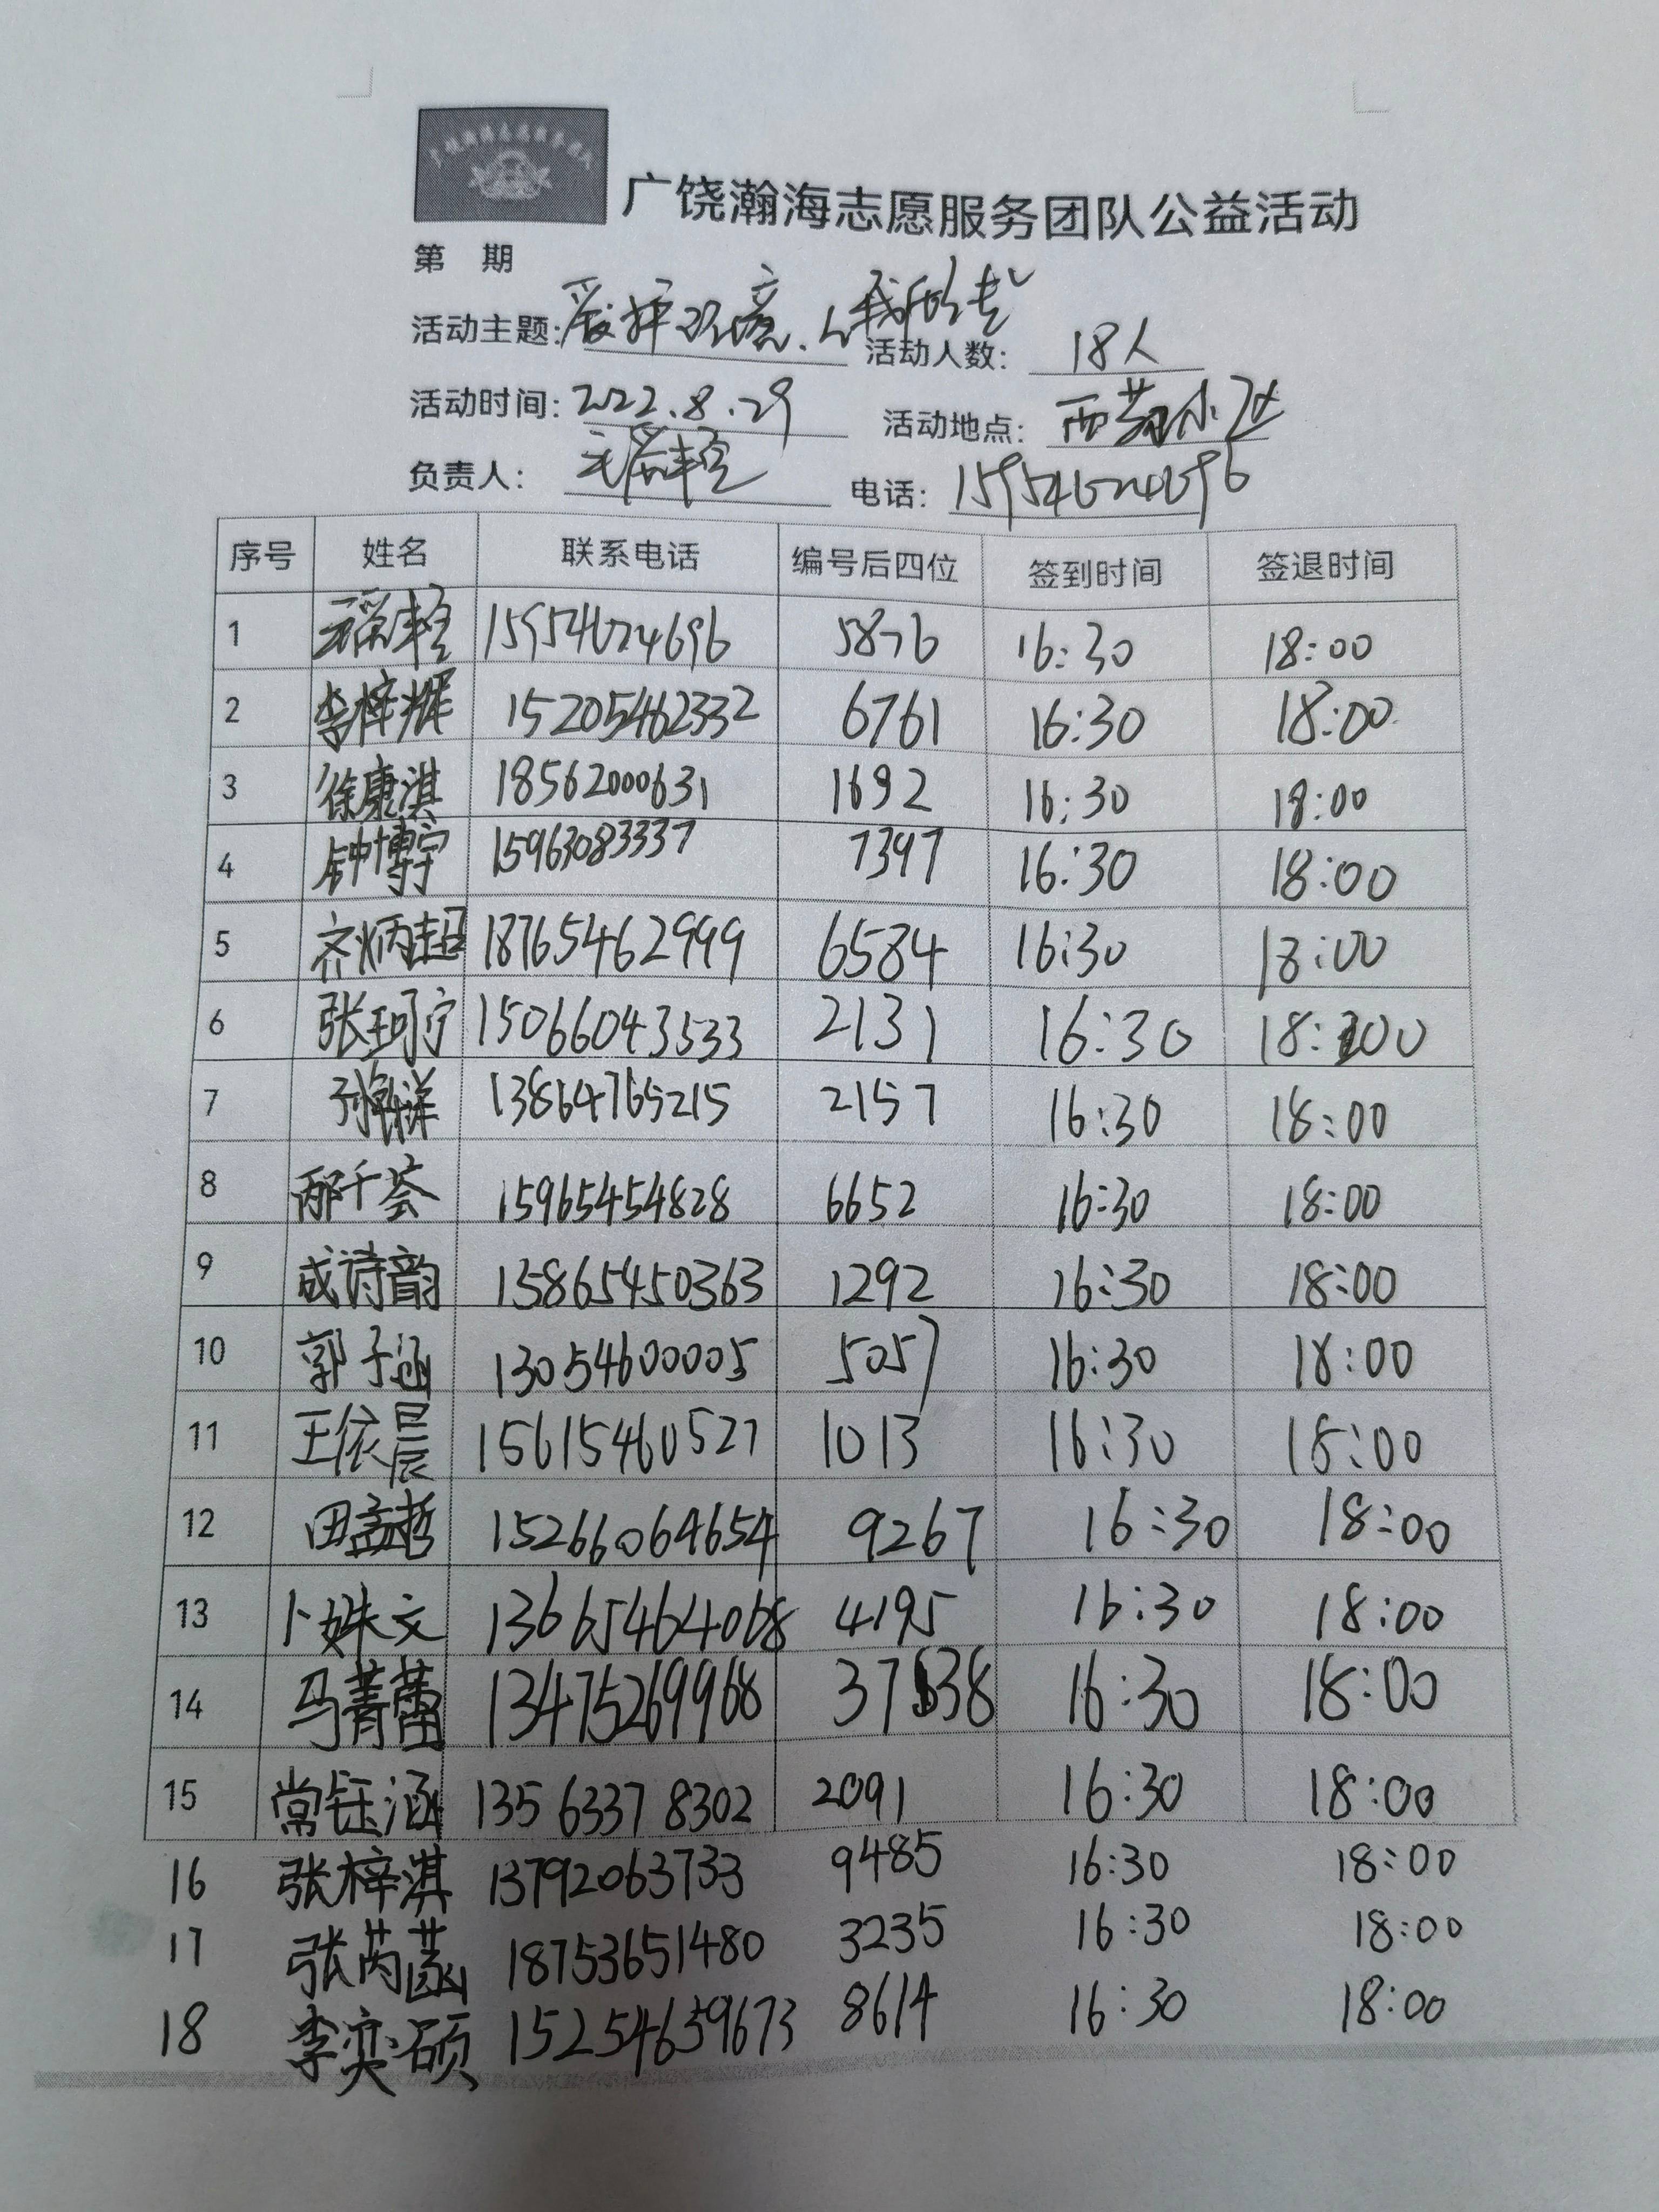 广饶瀚海志愿服务团队公益活动
第 期
活动主题: 爱护环境.从我做起
活动人数: 18人
活动时间: 2022.8.29
活动地点: 西苑小区
负责人:
电话: 15954624696
序号 姓名 联系电话 编号后四位 签到时间 签退时间
1 15954624696 5876 16:30 18:00
2 李梓耀 15205462332 6761 16:30 18:00
3 徐康淇 18562000631 1692 16:30 18:00
4 钟博宇 15963083337 7397 16:30 18:00
5 齐炳超 18765462999 6584 16:30 18:00
6 张珂宁 15066043533 2131 16:30 18:00
7 13864765215 2157 16:30 18:00
8 邴千荟 15965454828 6652 16:30 18:00
9 成诗韵 13865450363 1292 16:30 18:00
10 郭子涵 13054600005 5057 16:30 18:00
11 王依晨 15615460527 1013 16:30 18:00
12 田孟哲 15266064654 9267 16:30 18:00
13 卜姝文 13665464068 4195 16:30 18:00
14 马菁蕾 13475269968 16:30 18:00
15 常钰涵 13563378302 2091 16:30 18:00
16 张梓淇 13792063733 9485 16:30 18:00
17 张芮菡 18753651480 3235 16:30 18:00
18 李奕硕 15254659673 8614 16:30 18:00